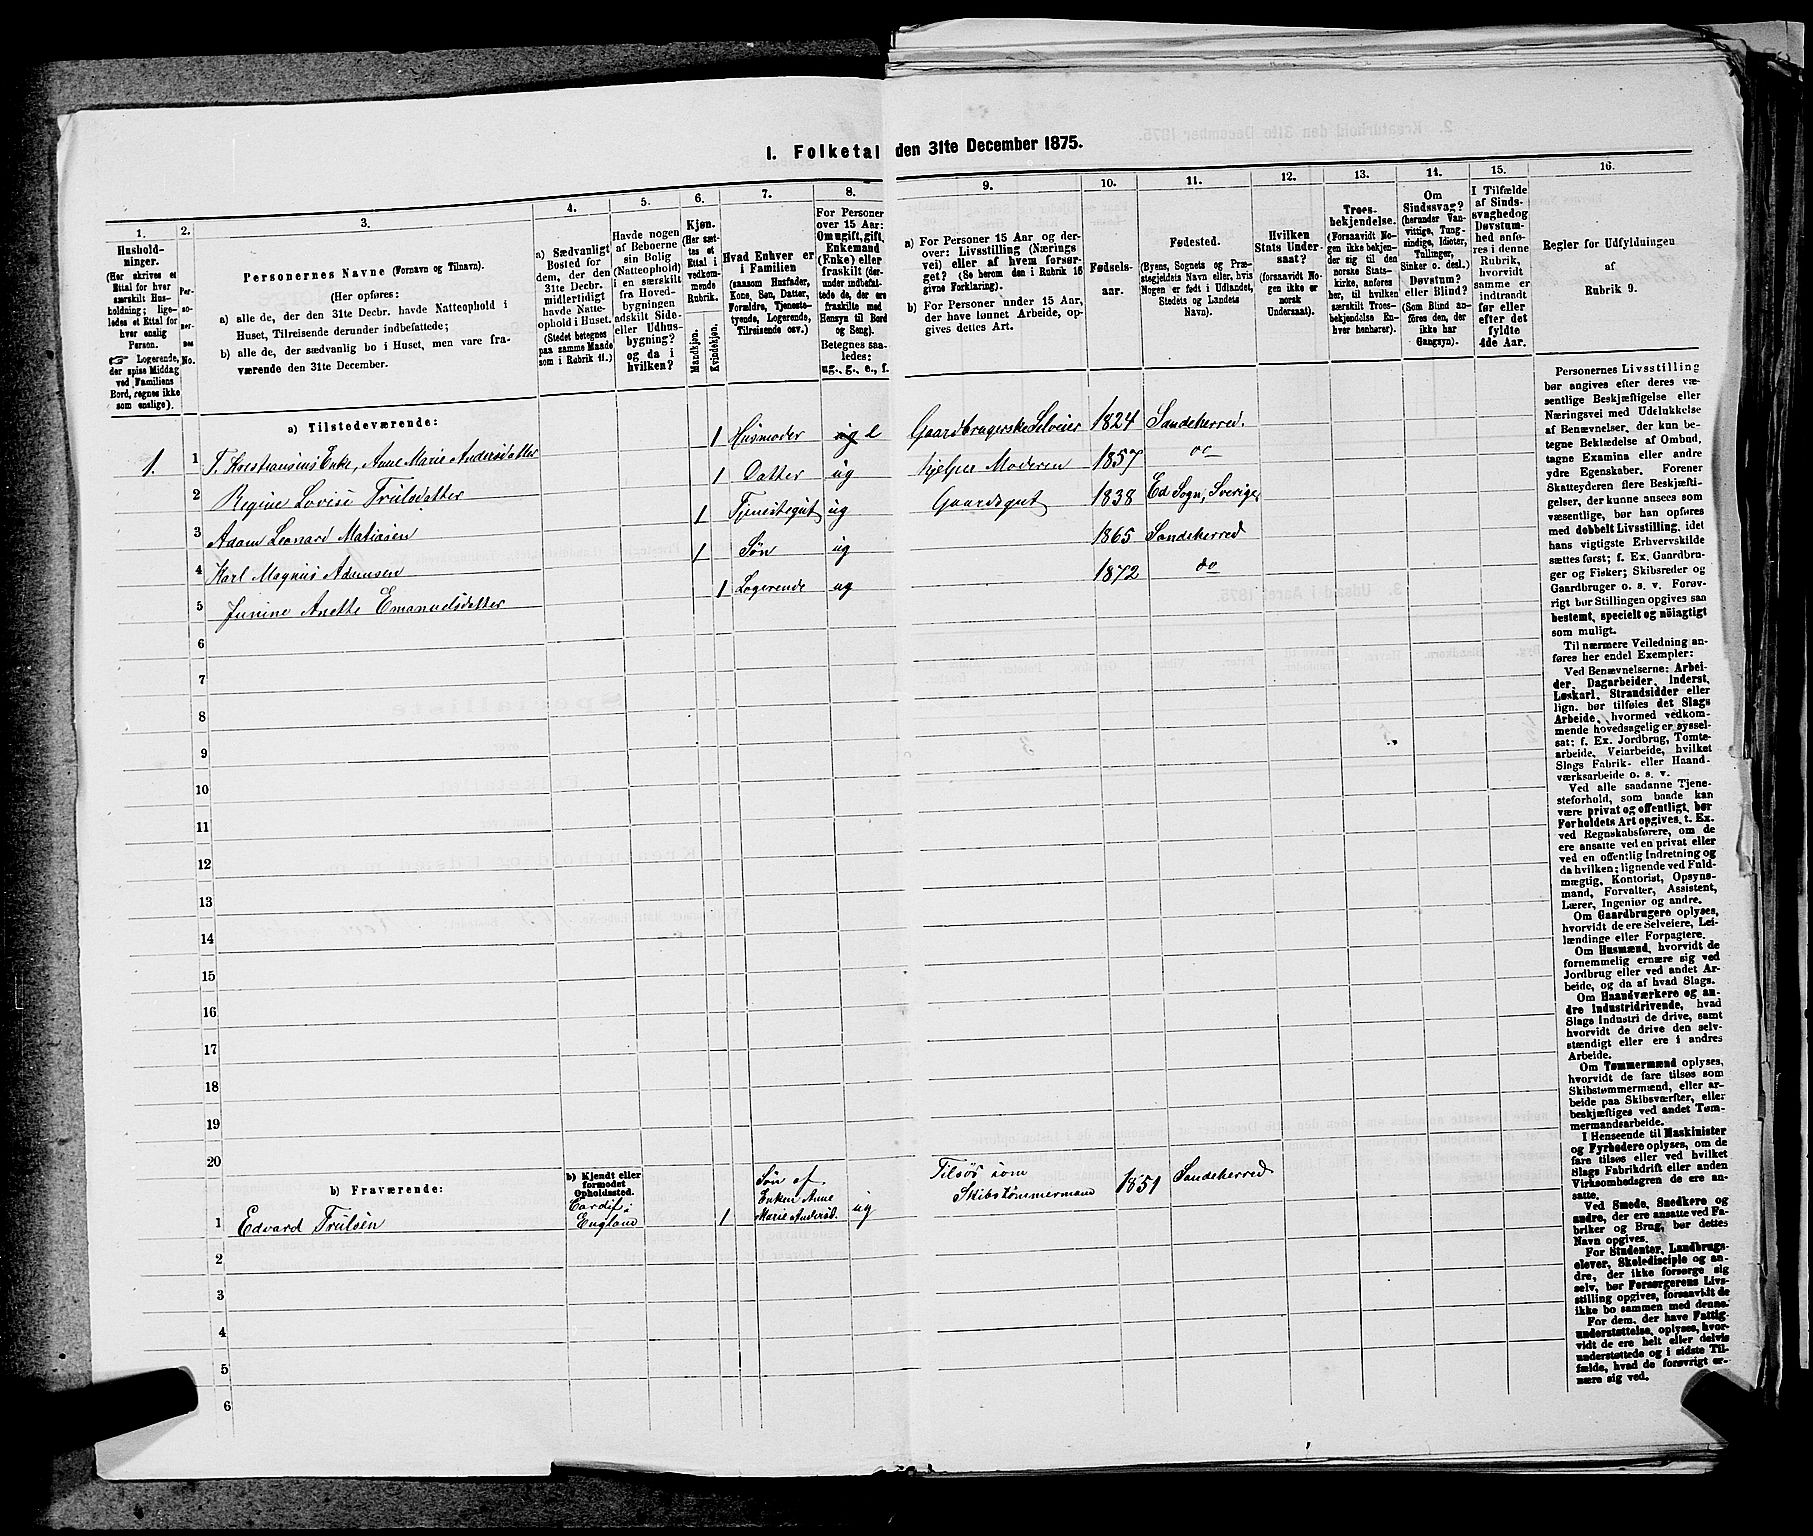 1. Folketal den 31te December 1875.
1.
Hushold-
ninger.
(Her skrives et
Ettal for hver
særskilt Hus-
holdning; lige-
ledes et Ettal for
hver enslig
Person.
☞ Logerende,
der spise Middag
ved Familiens
Bord, regnes ikke
som enslige).
2.
Per-
so-
ner-
nes
No.
3.
Personernes Navne (Fornavn og Tilnavn).
(Her opføres:
a) alle de, der den 31te Decbr. havde Natteophold i
Huset, Tilreisende derunder indbefattede;
b) alle de, der sædvanlig bo i Huset, men vare fra-
værende den 31te December.
4.
a) Sædvanligt
Bosted for
dem, der den
31te Decbr.
midlertidigt
havde Natte-
ophold i Huset.
(Stedet betegnes
paa samme Maade
som i Rubrik 11.)
5.
Havde nogen
af Beboerne
sin Bolig
(Natteophold)
i en særskilt
fra Hoved-
bygningen
adskilt Side-
eller Udhus-
bygning?
og da i
hvilken?
6.
Kjøn.
(Her sæt-
tes et
Ettal i
vedkom-
mende
Rubrik.
Mandkjøn.
Kvindekjøn.
7.
Hvad Enhver er
i Familien
(saasom Husfader,
Kone, Søn, Datter,
Forældre, Tjeneste-
tyende, Logerende,
Tilreisende osv.)
8.
For Personer
over 15 Aar:
Om ugift, gift,
Enkemand
(Enke) eller
fraskilt (der-
under indbefat-
tede de, der ere
fraskilte med
Hensyn til Bord
og Seng).
Betegnes saa-
ledes:
ug., g., e., f.
9.
a) For Personer 15 Aar og der-
over: Livsstilling (Nærings
vei) eller af hvem forsør-
get? (Se herom den i Rubrik 16
givne Forklaring).
b) For Personer under 15 Aar,
der have lønnet Arbeide, op-
gives dettes Art.
10.
Fødsels-
aar.
11.
Fødested.
(Byens, Sognets og Præ-
stegjeldets Navn eller, hvis
Nogen er født i Udlandet,
Stedets og Landets
Navn).
12.
Hvilken
Stats Under-
saat?
(forsaavidt No-
gen ikke er
norsk
Undersaat).
13.
Troes-
bekjendelse.
(Forsaavidt No-
gen ikke bekjen-
der sig til den
norske Stats-
kirke, anføres
her, til hvilken
særskilt Troes-
bekjendelse En-
hver henhører).
14.
Om
Sindssvag?
(herunder Van-
vittige, Tung-
sindige, Idioter,
Tullinger,
Sinker o. desl.)
Døvstum?
eller Blind?
(Som Blind an-
føres den, der
ikke har
Gangsyn).
15.
I Tilfælde
af Sinds-
svaghed og
Døvstum-
hed anfø-
res i denne
Rubrik,
hvorvidt
samme er
indtraadt
før eller
efter det
fyldte
4de Aar.
16.
Regler for Udfyldningen
af
Rubrik 9.
a) Tilstedeværende:
1. 1 T. Kristiansens Enke, Anne Marie Andersdatter 1 Husmoder ug e Gaardbrugerske Selveier 1824 Sandeherred.
2 Regine Lovise Trulsdatter 1 Datter ug hjelper Moderen 1857 do
3 Adam Leonard Matiasen 1 Tjenstegut ug Gaardsgut 1838 Ed Sogn, Sverige
4 Karl Magnus Adamsen 1 Søn ug 1865 Sandeherred
5 Junine Anette Emanuelsdatter 1 Logerende ug 1872 do
6
7
8
9
10
11
12
13
14
15
16
17
18
19
20
b) Fraværende:
b) Kjendt eller
formodet
Opholdssted.
1 Edvard Trulsen Cardif i
England 1 Søn af
Enken Anne
Marie Andersd. ug Tilsøs som
Skibstømmermand 1851 Sandeherred
2
3
4
5
6
Personernes Livsstilling
bør angives efter deres væ-
sentlige Beskjæftigelse eller
Næringsvei med Udelukkelse
af Benævnelser, der kun be-
tegne Beklædelse af Ombud,
tagne Examina eller andre
ydre Egenskaber. Forener
Skatteyderen flere Beskjæfti-
gelser, der kunne ansees som
væsentlige, bør han opføres
med dobbelt Livsstilling, idet
hans vigtigste Erhvervskilde
sættes først; f. Ex. Gaardbru-
ger og Fisker; Skibsreder og
Gaardbruger o. s. v. Forøv-
rigt bør Stillingen opgives saa
bestemt, specielt og nøiagtigt
som muligt.
Til nærmere Veiledning an-
føres her endel Exempler:
Ved Benævnelserne: Arbei-
der, Dagarbeider, Inderst,
Løskarl, Strandsidder eller
lign. bør tilføles det Slags
Arbeide, hvormed vedkom-
mende hovedsagelig er syssel-
sat: f. Ex. Jordbrug, Tomte-
arbeide, Veiarbeide, hvilket
Slags Fabrik- eller Haand-
værksarbeide o. s. v.
Ved alle saadanne Tjene-
steforhold, som baade kan
være privat og offentligt, bør
Forholdets Art opgives, t. Ex.
ved Regnskabsførere, om de
ere ansatte ved en privat eller
ved en offentlig Indretning og
da hvilken; lignende ved Fuld-
mægtig, Kontorist, Opsyns-
mand, Forvalter, Assistent,
Lærer, Ingeniør og andre.
Om Gaardbrugere oplyses,
hvorvidt de ere Selveiere, Lei-
lændinge eller Forpagtere.
Om Husmænd, hvorvidt de
fornemmelig ernære sig ved
Jordbrug eller ved andet Ar-
beide, og da af hvad Slags.
Om Haandværkere og an-
dre Industridrivende, hvad
Slags Industri de drive, samt
hvorvidt de drive den selv-
stændigt eller ere i andres
Arbeide.
Om Tømmermænd oplyses,
hvorvidt de fare tilsøs som
Skibstømmermænd, eller ar-
beide paa Skibsværfter, eller
beskjæftiges ved andet Tøm-
mermandsarbeide.
I Henseende til Maskinister
og Fyrbødere oplyses, om de
fare tilsøs eller ved hvilket
Slags Fabrikdrift eller anden
Virksomhedsgren de ere an-
satte.
Ved Smede, Snedkere og
andre, der ere ansatte ved Fa-
briker og Brug, bør dettes
Navn opgives.
For Studenter, Landbrugs-
elever, Skoledisciple og an-
dre, der ikke forsørge sig
selv, bør Forsørgerens Livs-
stilling opgives, forsaavidt de
ikke bo sammen med denne.
For dem, der have Fattig-
understøttelse, oplyses, hvor-
vidt de ere helt eller delvis
understøttede og i sidste Til-
fælde, hvad de forøvrigt er-
nære sig ved.